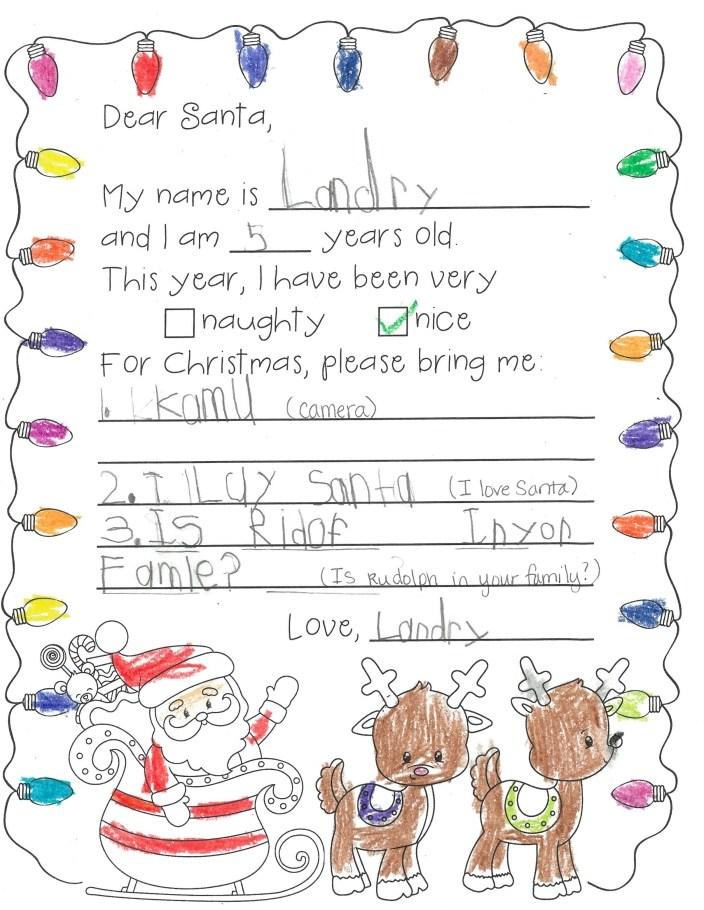 Dear Santa,
My name is Landry
and I am 5 years old.
This year, I have been very
naughty nice
For Christmas, please bring me:
1. Kamu (camera)
2. I Luy Santa (I love Santa)
3. Is Ridof Inyor
Famle? (Is Rudolph in your family?)
Love, Landry